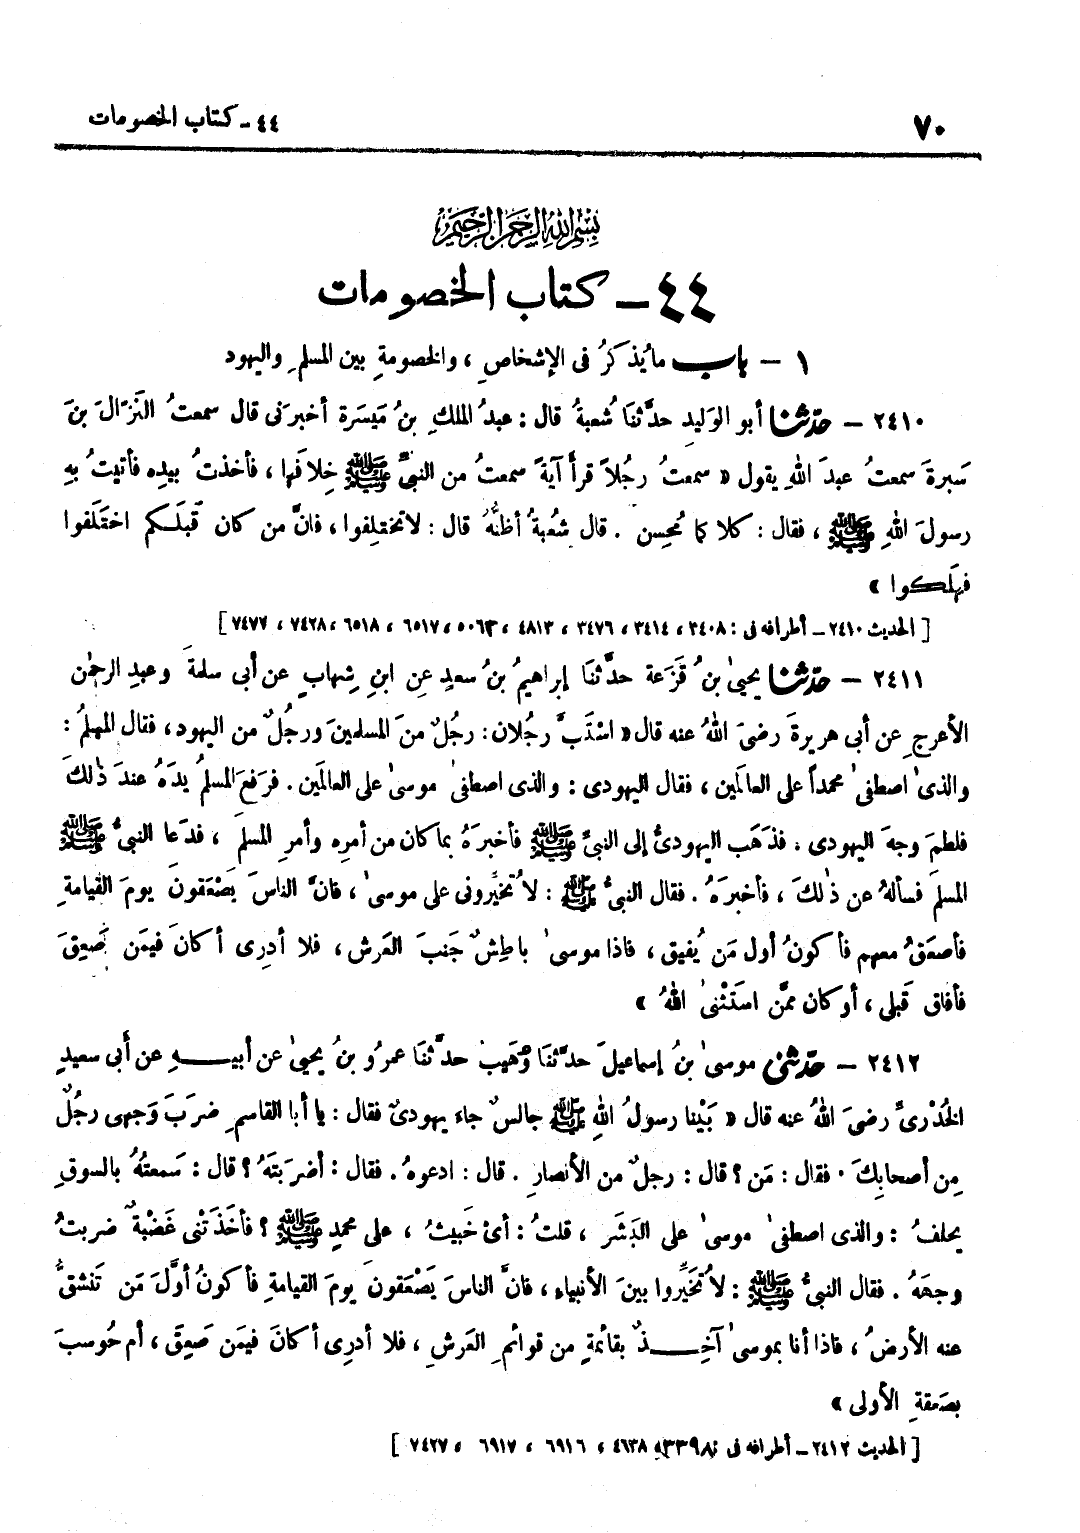 ٧٠
٤٤ - كتاب الخصومات
بِسْمِ اللهِ الرَّحْمٰنِ الرَّحِيمِ
٤٤ - كتاب الخصومات
١ - باب ما يُذكَرُ فى الإشخاصِ ، والخصومةِ بين المسلمِ واليهود
٢٤١٠ - حدّثنا أبو الوَليدِ حدَّثنَا شُعبةُ قال : عبدُ الملكِ بنُ مَيسَرة أخبرَنى قال سمعتُ النَّزالَ بنَ
سَبرةَ سمعتُ عبدَ اللهِ يقول « سمعتُ رجُلاً قرأَ آيةً سمعتُ من النبىِّ ﷺ خِلافَها ، فأخذتُ بيدِه فأتيتُ بهِ
رسولَ اللهِ ﷺ ، فقال : كلاكما مُحسِن . قال شُعبةُ أظنُّهُ قال : لا تختلِفوا ، فانَّ من كان قبلَكم اختَلَفوا
فهَلَكوا »
[ الحديث ٢٤١٠ - أطرافه فى : ٣٤٠٨ ، ٣٤١٤ ، ٣٤٧٦ ، ٤٨١٣ ، ٥٠٦٣ ، ٦٥١٧ ، ٦٥١٨ ، ٧٤٢٨ ، ٧٤٧٧ ]
٢٤١١ - حدّثنا يحيىٰ بنُ قَزَعة حدَّثنَا إبراهيمُ بنُ سعيدٍ عنِ ابنِ شِهابٍ عن أبى سلمةَ وعبدِ الرحمٰن
الأعرجِ عن أبى هريرةَ رضىَ اللهُ عنه قال « استَبَّ رجُلان : رجُلٌ منَ المسلمينَ ورجُلٌ من اليهود ، فقال المسلمُ :
والذى اصطفىٰ محمداً على العالَمين ، فقال اليهودى : والذى اصطفىٰ موسىٰ على العالَمين . فرَفعَ المسلمُ يدَهُ عندَ ذٰلكَ
فلطمَ وجهَ اليهودى . فذهَبَ اليهودىُّ إلى النبىِّ ﷺ فأخبرَهُ بما كان من أمرِه وأمرِ المسلمَ ، فدَعا النبىُّ ﷺ
المسلمَ فسألهُ عن ذٰلكَ ، فأخبرَهُ . فقال النبىُّ ﷺ : لا تُخيِّرونى على موسىٰ ، فانَّ الناسَ يَصْعَقونَ يومَ القيامةِ
فأصعَقُ معهم فأكونُ أول مَن يُفيق ، فاذا موسىٰ باطِشٌ جَنبَ العَرش ، فلا أدرِى أكانَ فيمَن صَعِقَ
فأفاق قَبلى ، أو كان ممَّن استَثْنىٰ اللهُ »
٢٤١٢ - حدّثنى موسىٰ بنُ إسماعيلَ حدَّثنَا وُهَيبٌ حدَّثنَا عمرُو بنُ يحيىٰ عن أبيـهِ عن أبى سعيدٍ
الخُدْرىِّ رضىَ اللهُ عنه قال « بَيْنا رسولُ اللهِ ﷺ جالسٌ جاءَ يهودىٌّ فقال : يا أبا القاسمِ ضرَبَ وَجهى رجُلٌ
مِن أصحابِكَ . فقال : مَن ؟ قال : رجلٌ من الأنصارِ . قال : ادعوهُ . فقال : أضرَبتَهُ ؟ قال : سَمعتُهُ بالسوقِ
يحلفُ : والذى اصطفىٰ موسىٰ على البَشَر ، قلتُ : أىْ خَبيثُ ، على محمدٍ ﷺ ؟ فأخَذَتْنى غَضْبةٌ ضربتُ
وجهَهُ . فقال النبىُّ ﷺ : لا تُخَيِّروا بينَ الأنبياءِ ، فانَّ الناسَ يَصْعَقونَ يومَ القيامةِ فأكونُ أوَّلَ مَن تَنشَقُّ
عنه الأرضُ ، فاذا أنا بموسىٰ آخِـذٌ بقائمةٍ من قوائمِ العَرشِ ، فلا أدرِى أكانَ فيمَن صَعِقَ ، أم حُوسبَ
بصَعقةِ الأولى »
[ الحديث ٢٤١٢ - أطرافه فى : ٣٣٩٨ ، ٤٦٣٨ ، ٦٩١٦ ، ٦٩١٧ ، ٧٤٢٧ ]